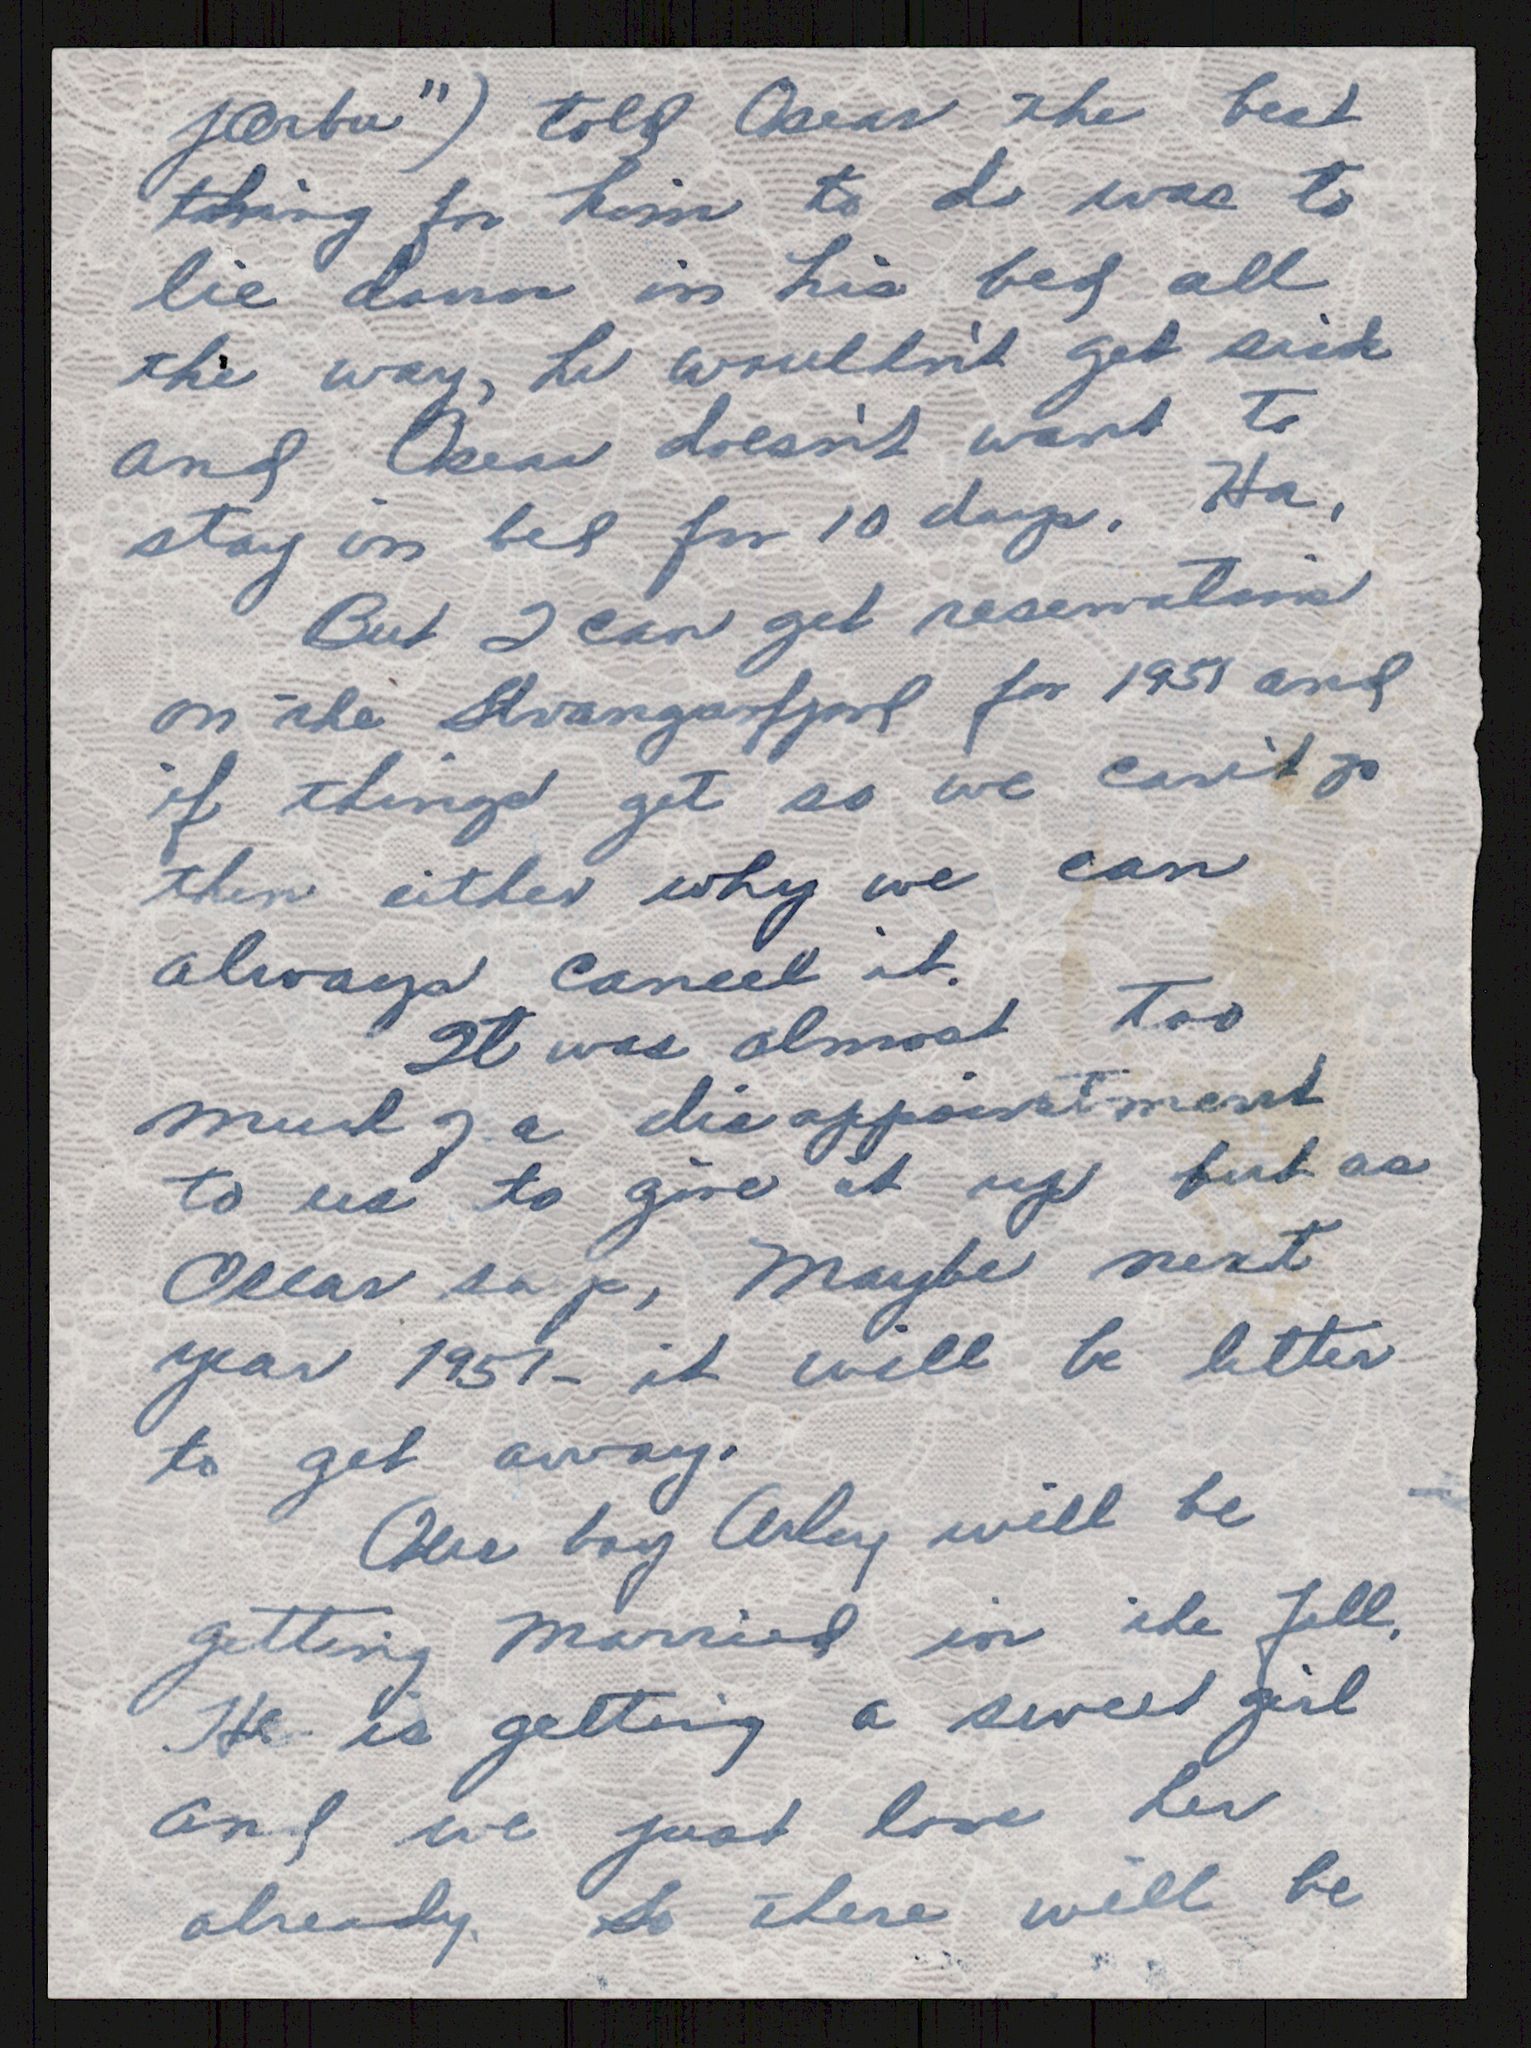 told Oscar the best
thing for him to do was to
lie down in his bed all
the way, he wouldn't get sick
and Oscar doesn't want to
stay in bed for 10 days. Ha,
But I can get reservations
on the Stvangarfjord for 1951 and
if things get so we can't go
then either why we can
always cancel it.
It was almost too
much of a disappointment
to us to give it up but as
Oscar says, Maybe next
year 1951 - it will be better
to get away.
Our boy Arley will be
getting married in the fall.
He is getting a sweet girl
and we just love her
already. So there will be